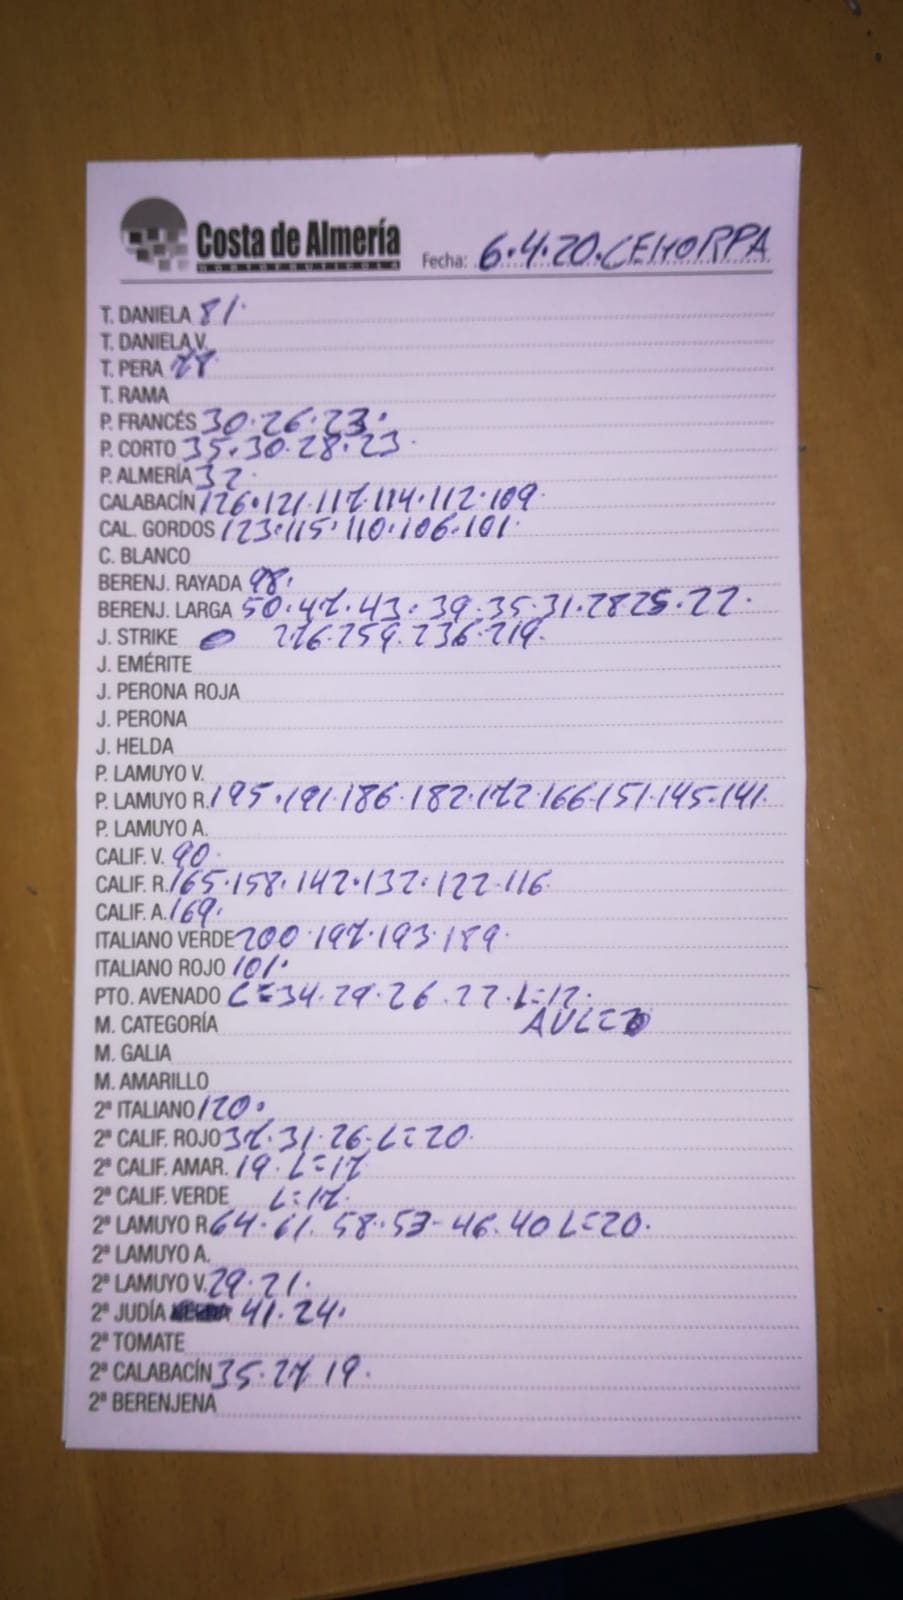 Costa de Almería
HORTOFRUTÍCOLA
Fecha: 6.4.20.CEHORPA
T. DANIELA 81.
T. DANELA V.
T. PERA
T. RAMA
P. FRANCÉS 30.26.23.
P. CORTO 35.30.28.23
P. ALMERÍA 32.
CALABACÍN 126.121.117.114.112.109.
CAL. GORDOS 123.115.110.106.101.
C. BLANCO
BERENJ. RAYADA 98.
BERENJ. LARGA 50.47.43.39.35.31.2825.22.
J. STRIKE 276.259.236.219.
J. EMÉRITE
J. PERONA ROJA
J. PERONA
J. HELDA
P. LAMUYO V.
P. LAMUYO R. 195.191.186.182.172.166.151.145.141.
P. LAMUYO A.
CALIF. V. 90.
CALIF. R. 165.158.142.132.122.116
CALIF. A. 169.
ITALIANO VERDE 200.197.193.189.
ITALIANO ROJO 101.
PTO. AVENADO C=34.29.26.22.L=12.
M. CATEGORÍA
M. GALIA
M. AMARILLO
2ª ITALIANO 120.
2ª CALIF. ROJO 37.31.26.L=20.
2ª CALIF. AMAR. 19.L=17
2ª CALIF. VERDE L=17.
2ª LAMUYO R. 64.61.58.53-46.40 L=20.
2ª LAMUYO A.
2ª LAMUYO V. 29.21.
2ª JUDÍA 41.24.
2ª TOMATE
2ª CALABACÍN 35.27.19.
2ª BERENJENA